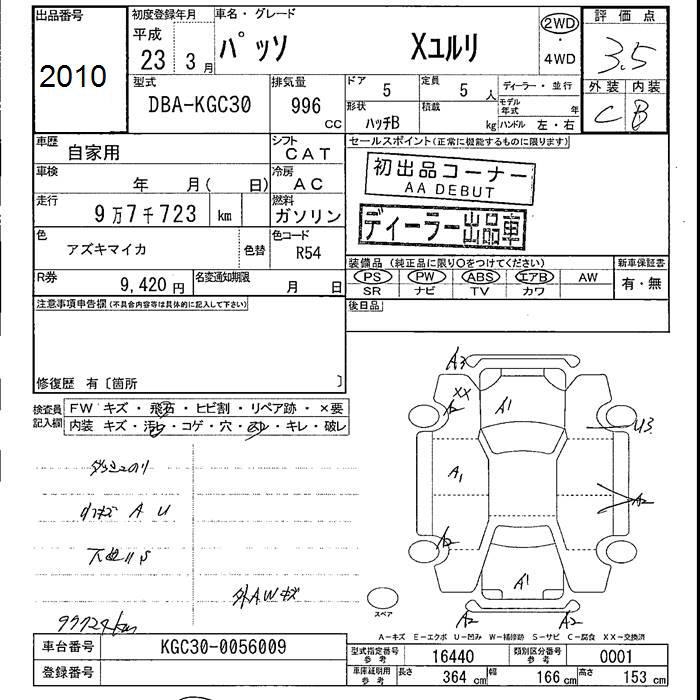 出品番号
2010
初度登録年月
平成
23 3月
車名・グレード
パッソ Xユルリ
2WD
4WD
評価点
3.5
外装 内装
C B
型式
DBA-KGC30
排気量
996
CC
ドア
5
定員
5人
ディーラー・並行
形状
ハッチB
積載
kg
モデル年式 年
ハンドル 左・右
車歴
自家用
シフト
CAT
車検
年 月( 日)
冷房
AC
走行
9万7千723 km
燃料
ガソリン
色
アズキマイカ
色替
色コード
R54
R券
9,420円
名変通知期限
月 日
セールスポイント(正常に機能するものに限ります)
初出品コーナー
AA DEBUT
ディーラー出品車
装備品 (純正品に限り○をつけてください)
PS PW ABS エアB AW
SR ナビ TV カワ
新車保証書
有・無
後日品
注意事項申告欄(不具合内容等は具体的に記入して下さい)
修復歴 有〔箇所 〕
検査員記入欄
FW キズ・飛石・ヒビ割・リペア跡・×要
内装 キズ・汚レ・コゲ・穴・スレ・キレ・破レ
A U
下廻りS
外AWキズ
97724km
A3
XX
A2
A1
U3
A1
A2
A2
A1
A2
A2
スペア
A-キズ E-エクボ U-凹み W-補修跡 S-サビ C-腐食 XX-交換済
車台番号
KGC30-0056009
登録番号
型式指定番号
参考
16440
類別区分番号
参考
0001
車庫証明用
参考
長さ
364 cm
幅
166 cm
高さ
153 cm